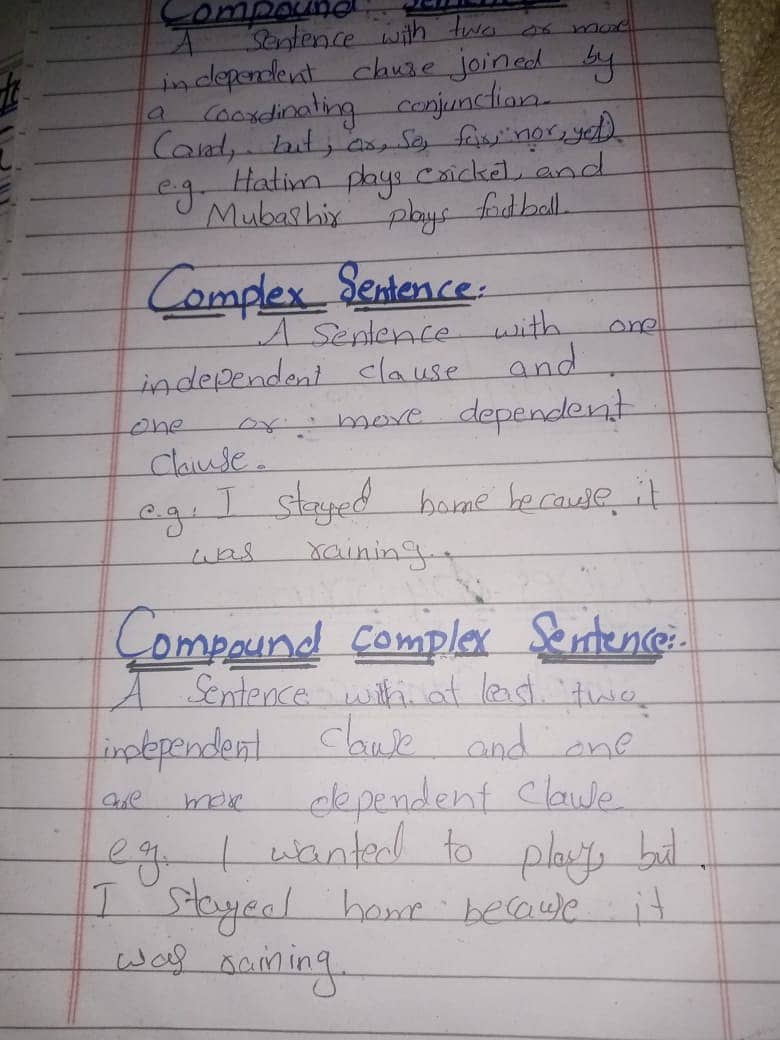 Compound Sentence
A Sentence with two or more
independent clause joined by
a coordinating conjunction.
(and, but, or, So, for, nor, yet)
e.g. Hatim plays cricket, and
Mubashir plays football.
Complex Sentence:
A Sentence with one
independent clause and
one or more dependent
Clause.
e.g. I stayed home because it
was raining.
Compound complex Sentence:-
A Sentence with at least two
independent Clause and one
are more dependent Clause
eg. I wanted to play, but
I stayed home because it
was raining.